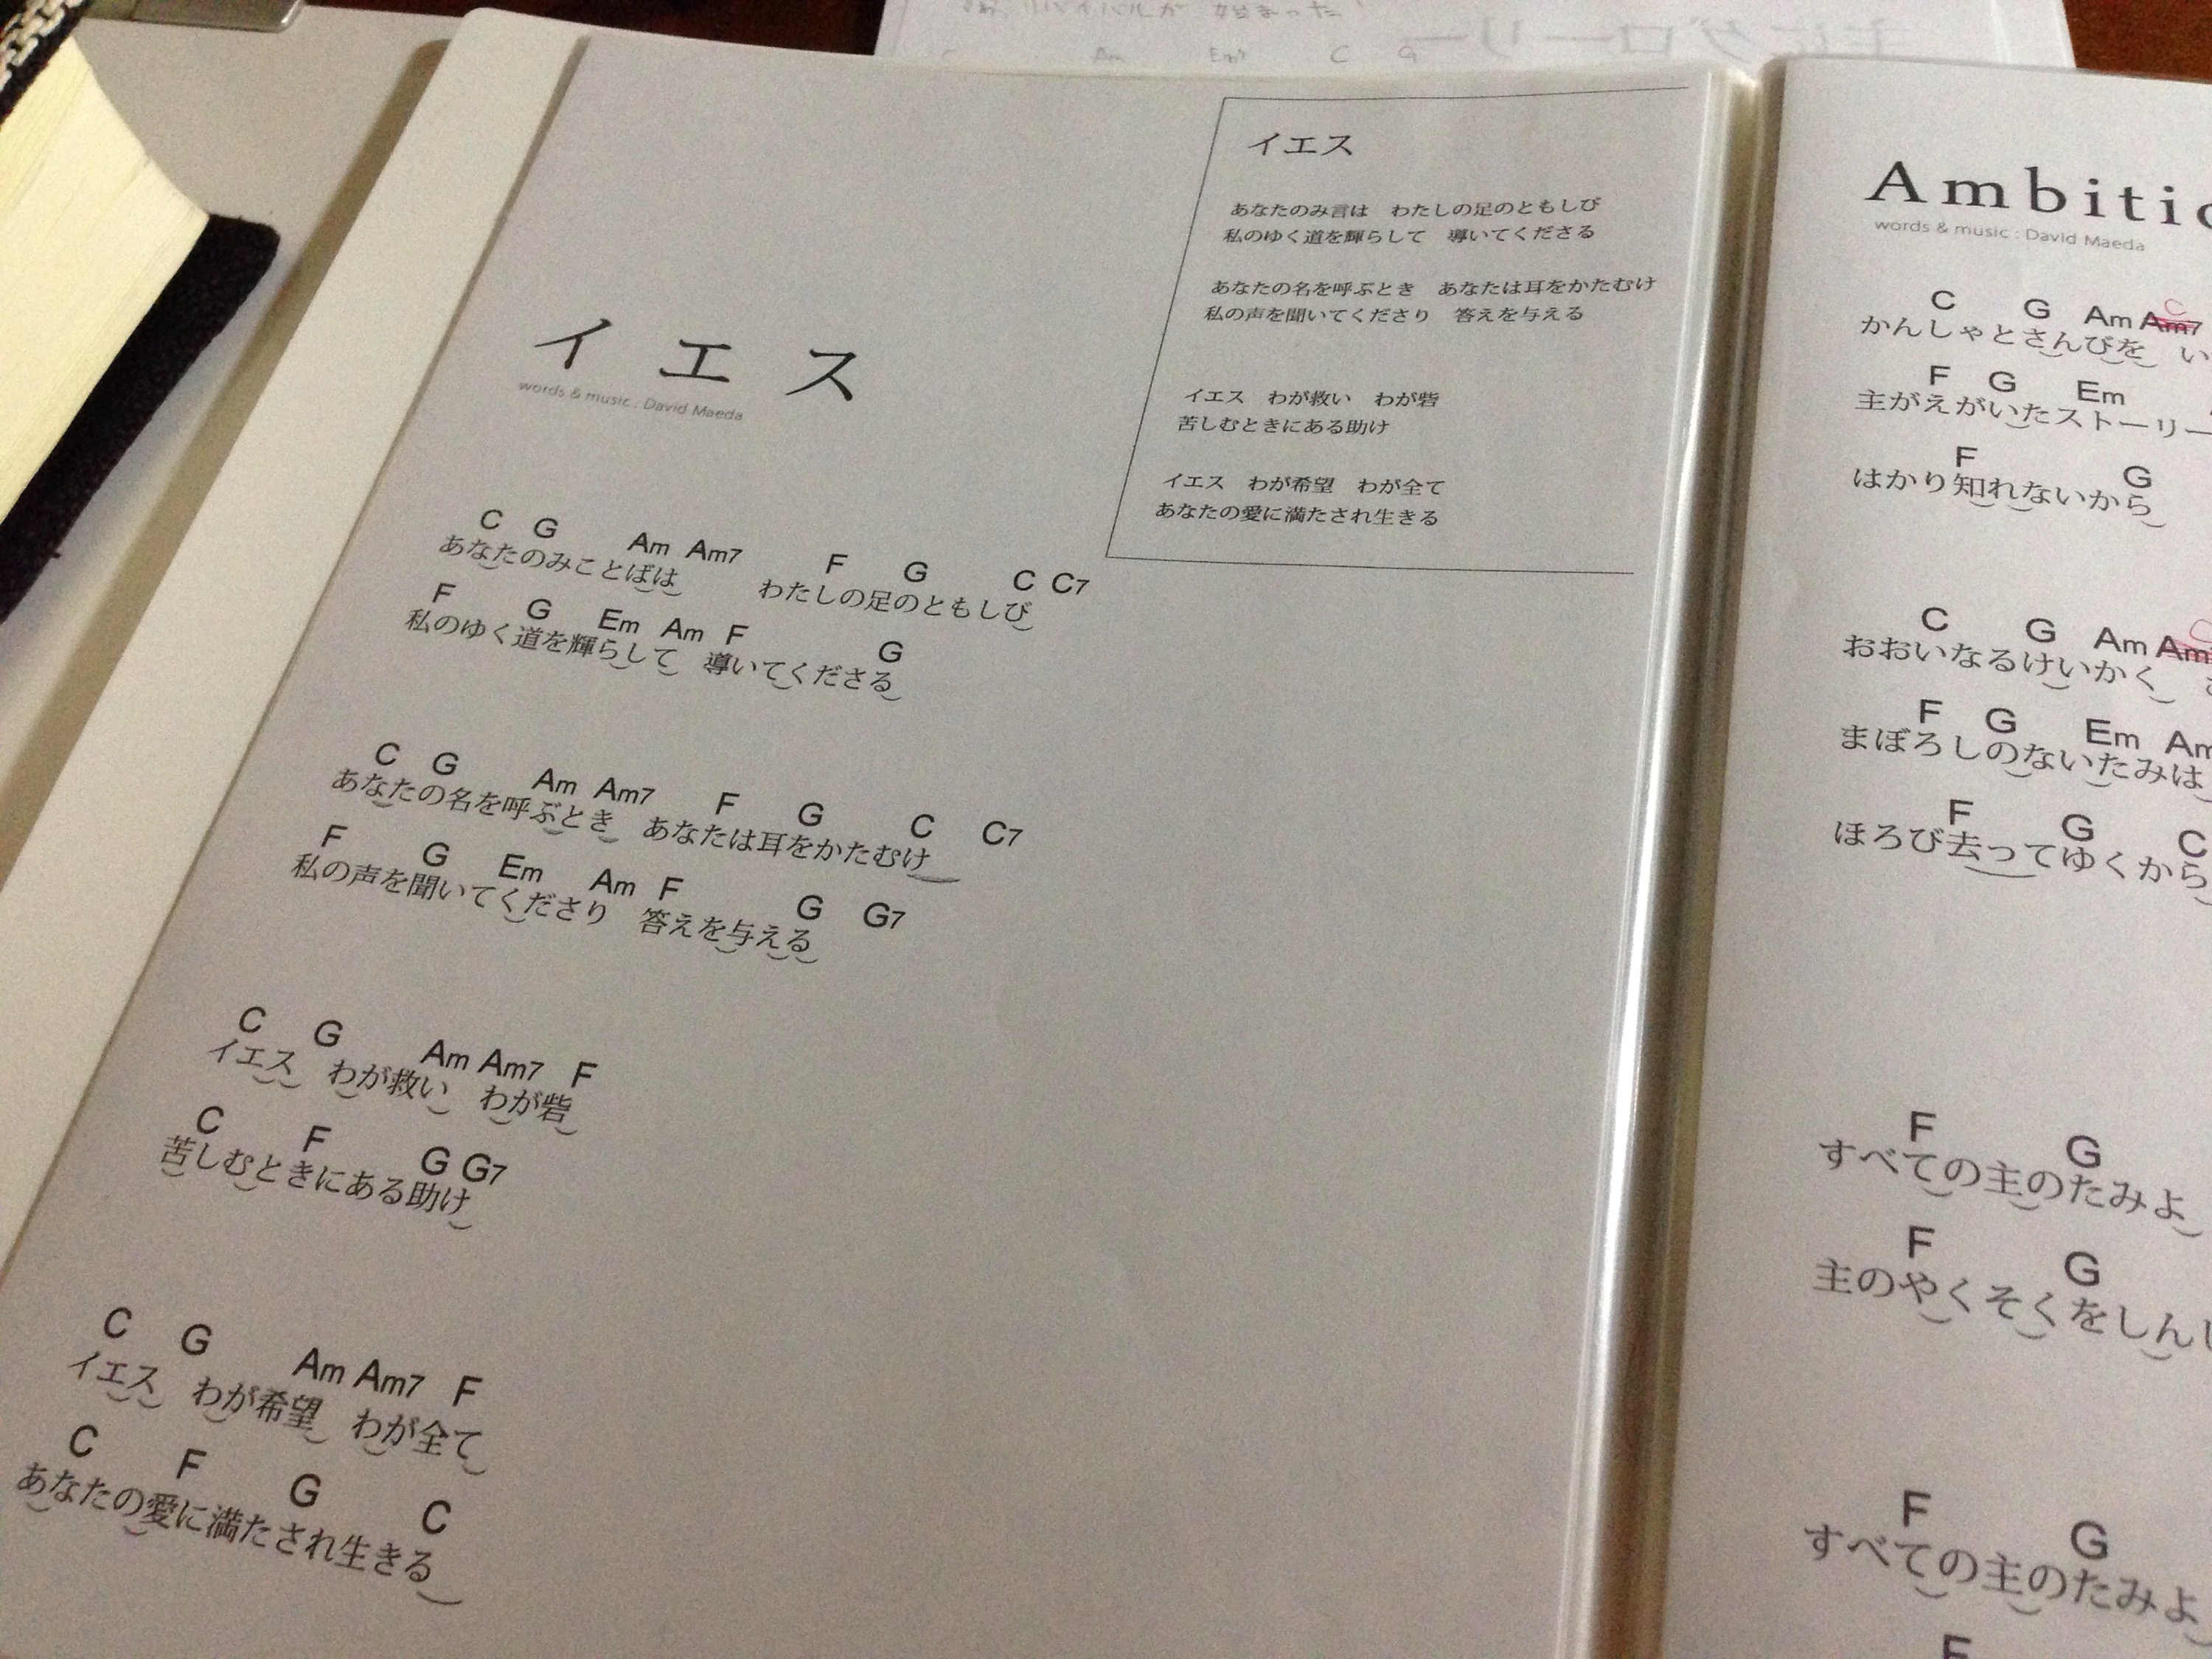 イエス
words & music : David Maeda
C G Am Am7 F G C C7
あなたのみことばは わたしの足のともしび
F G Em Am F G
私のゆく道を輝らして 導いてくださる
C G Am Am7 F G C C7
あなたの名を呼ぶとき あなたは耳をかたむけ
F G Em Am F G G7
私の声を聞いてくださり 答えを与える
C G Am Am7 F
イエス わが救い わが砦
C F G G7
苦しむときにある助け
C G Am Am7 F
イエス わが希望 わが全て
C F G C
あなたの愛に満たされ生きる
イエス
あなたのみ言は わたしの足のともしび
私のゆく道を輝らして 導いてくださる
あなたの名を呼ぶとき あなたは耳をかたむけ
私の声を聞いてくださり 答えを与える
イエス わが救い わが砦
苦しむときにある助け
イエス わが希望 わが全て
あなたの愛に満たされ生きる
Ambitio
words & music : David Maeda
C G Am Am7 C
かんしゃとさんびを い
F G Em
主がえがいたストーリー
F G
はかり知れないから
C G Am Am C
おおいなるけいかく
F G Em Am
まぼろしのないたみは
F G C
ほろび去ってゆくから
F G
すべての主のたみよ
F G
主のやくそくをしん
F G
すべての主のたみよ
F
主にグローリー
リバイバルが 始まった!
Am Em7 C G